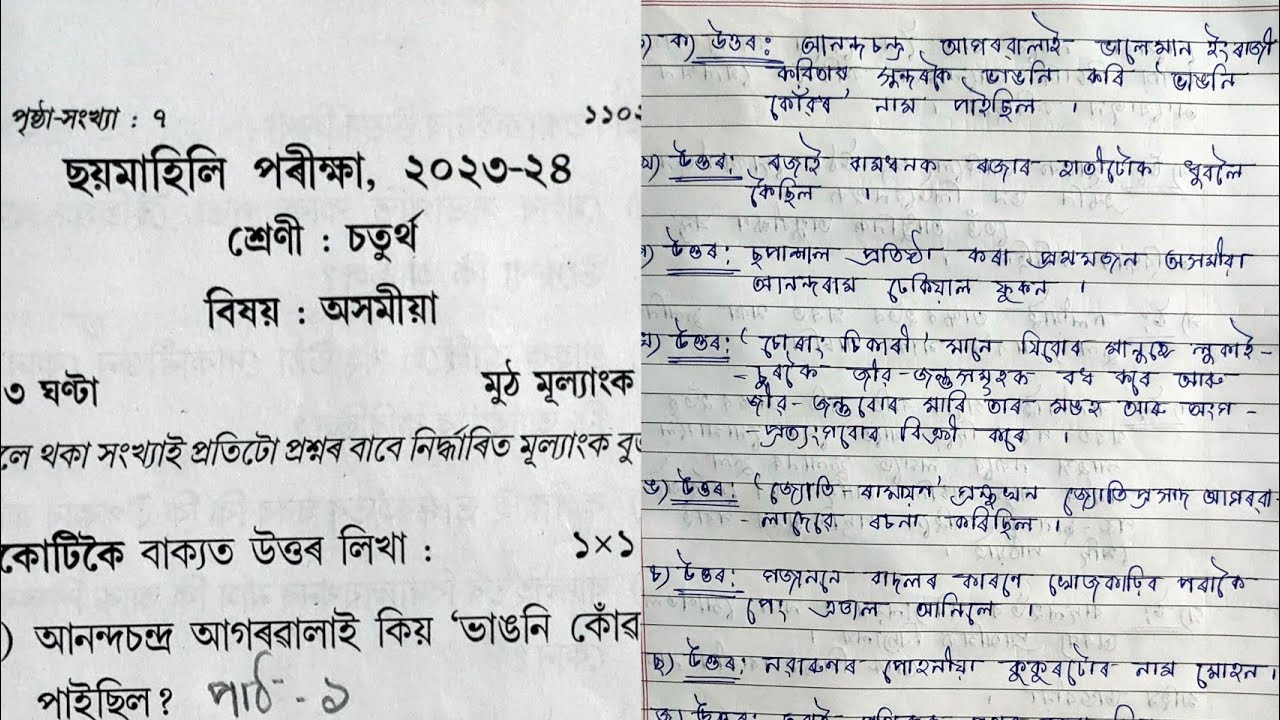 পৃষ্ঠা-সংখ্যা : ৭
১১০২
ছয়মাহিলি পৰীক্ষা, ২০২৩-২৪
শ্ৰেণী : চতুৰ্থ
বিষয় : অসমীয়া
৩ ঘণ্টা
মুঠ মূল্যাংক
লে থকা সংখ্যাই প্ৰতিটো প্ৰশ্নৰ বাবে নিৰ্দ্ধাৰিত মূল্যাংক বুজ
কোটিকৈ বাক্যত উত্তৰ লিখা :
১×১
) আনন্দচন্দ্ৰ আগৰৱালাই কিয় ‘ভাঙনি কোঁৱ
পাইছিল ? পাঠ - ১
) ক) উত্তৰ: আনন্দচন্দ্ৰ আগৰৱালাই ভালেমান ইংৰাজী
কবিতাৰ সুন্দৰকৈ ভাঙনি কৰি 'ভাঙনি
কোঁৱৰ' নাম পাইছিল ।
খ) উত্তৰ: ৰজাই ৰামধনক ৰজাৰ হাতীটোক ধুবলৈ
কৈছিল ।
) উত্তৰ: ছপাশাল প্ৰতিষ্ঠা কৰা প্ৰথমজন অসমীয়া
আনন্দৰাম ঢেকিয়াল ফুকন ।
ঘ) উত্তৰ: 'চোৰাং চিকাৰী' মানে যিবোৰ মানুহে লুকাই-
-চুৰকৈ জীৱ-জন্তুসমূহক বধ কৰে আৰু
জীৱ-জন্তুবোৰ মাৰি তাৰ মঙহ আৰু অংগ-
-প্ৰত্যংগবোৰ বিক্ৰী কৰে ।
ঙ) উত্তৰ: 'জ্যোতি ৰামায়ণ' গ্ৰন্থখন জ্যোতিপ্ৰসাদ আগৰৱা
-লাদেৱে ৰচনা কৰিছিল ।
চ) উত্তৰ: গজাননে বাদলৰ কাৰণে খোজকাঢ়িব পৰাকৈ
পেং এডাল আনিলে ।
ছ) উত্তৰ: নৱাৰুনৰ পোহনীয়া কুকুৰটোৰ নাম মোহন ।
জ) উত্তৰ: